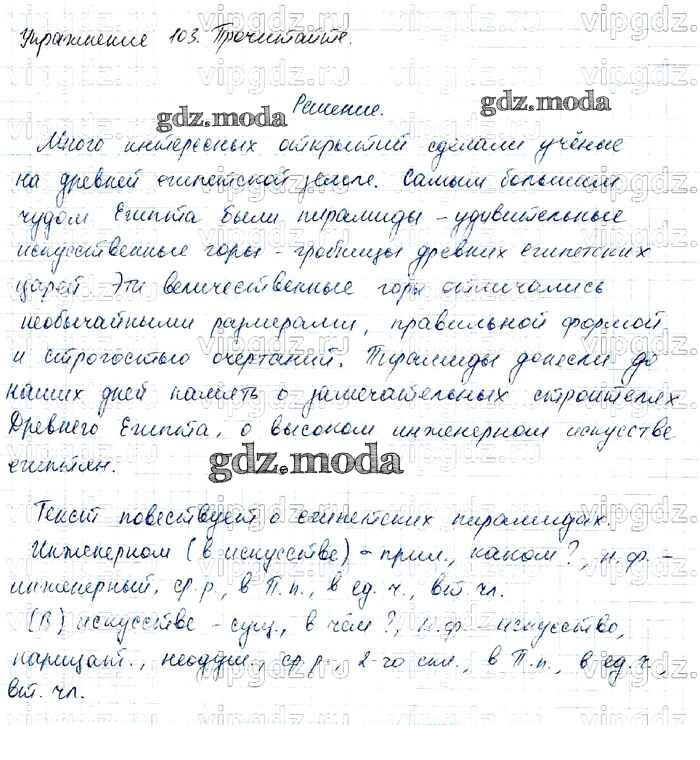 Упражнение 103. Прочитайте.
Решение.
gdz.moda
gdz.moda
Много интересных открытий сделали учёные
на древней египетской земле. Самым большим
чудом Египта были пирамиды - удивительные
искусственные горы - гробницы древних египетских
царей. Эти величественные горы отличались
необычайными размерами, правильной формой
и строгостью очертаний. Пирамиды донесли до
наших дней память о замечательных строителях
Древнего Египта, о высоком инженерном искусстве
египтян.
gdz.moda
Текст повествует о египетских пирамидах.
Инженерном (в искусстве) - прил., каком?, н.ф. -
инженерный, ср.р., в П.п., в ед.ч., вт. чл.
(В) искусстве - сущ., в чём?, н.ф. - искусство,
нарицат., неодуш., ср.р., 2-го скл., в П.п., в ед.ч.,
вт. чл.
vipgdz.ru